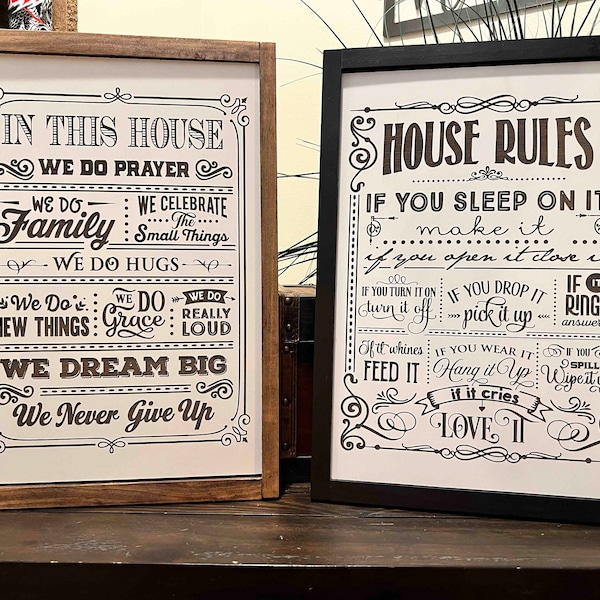 IN THIS HOUSE
WE DO PRAYER
WE DO
Family
WE CELEBRATE
The
Small Things
WE DO HUGS
We Do
NEW THINGS
WE DO
Grace
WE DO
REALLY
LOUD
WE DREAM BIG
We Never Give Up
HOUSE RULES
IF YOU SLEEP ON IT
make it
if you open it close i
IF YOU TURN IT ON
turn it off
IF YOU DROP IT
pick it up
IF IT
RING
answer
If it whines
FEED IT
IF YOU WEAR IT
Hang it Up
IF YOU
SPILL
Wipe it u
if it cries
LOVE IT